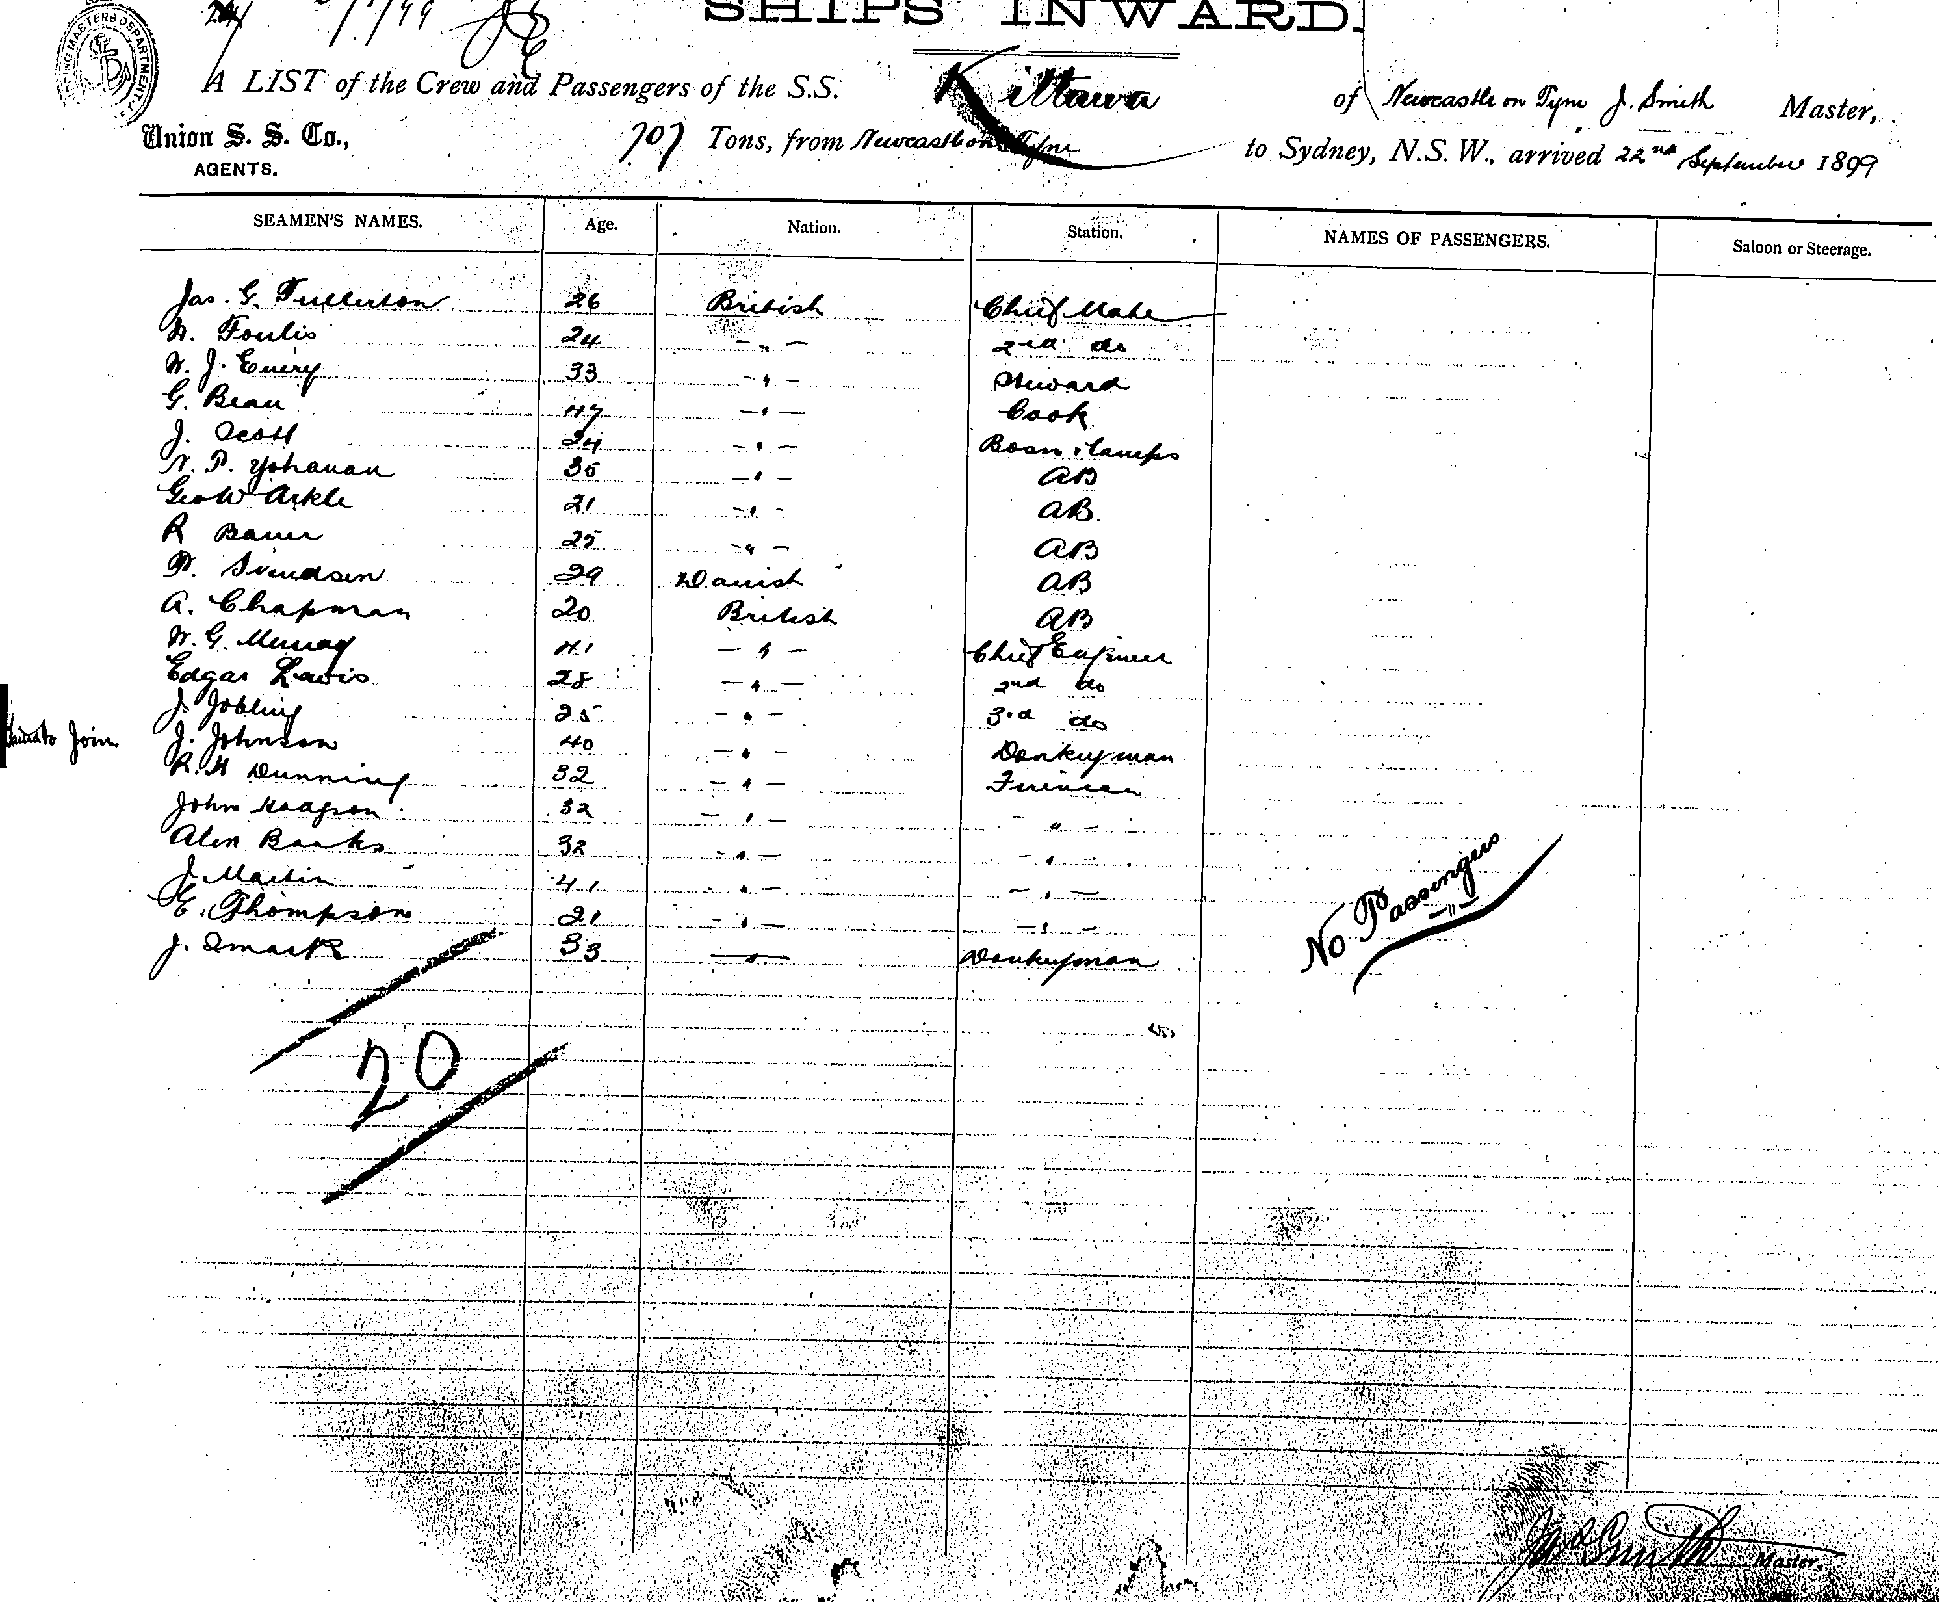 SHIPS INWARD.
A LIST of the Crew and Passengers of the S.S. Kittawa of Newcastle on Tyne J. Smith Master,
Union S. S. Co.,
AGENTS.
707 Tons, from Newcastle on Tyne to Sydney, N.S.W., arrived 22nd September 1899
SEAMEN'S NAMES. Age. Nation. Station. NAMES OF PASSENGERS. Saloon or Steerage.
Jas. G. Fullerton 26 British Chief Mate
W. Foulis 24 -„- 2nd do
W. J. Every 33 -„- Steward
G. Bean 47 -„- Cook
J. Scott 24 -„- Bosn & Lamps
N. P. Yohanan 35 -„- AB
Geo W Arkle 21 -„- AB.
R Bauer 25 -„- AB
P. Svendsen 29 Danish AB
A. Chapman 20 British AB
W. G. Murray 41 -„- Chief Engineer
Edgar Lewis 28 -„- 2nd do
J. Jobling 25 -„- 3rd do
to Join J. Johnson 40 -„- Donkeyman
R. H Dunning 32 -„- Fireman
John Hodgson 32 -„- -„-
Alex Banks 32 -„- -„-
J. Martin 41 -„- -„-
E. Thompson 21 -„- -„-
J. Smack 33 -„- Donkeyman
No Passengers
-„-
20
Jas Smith Master.